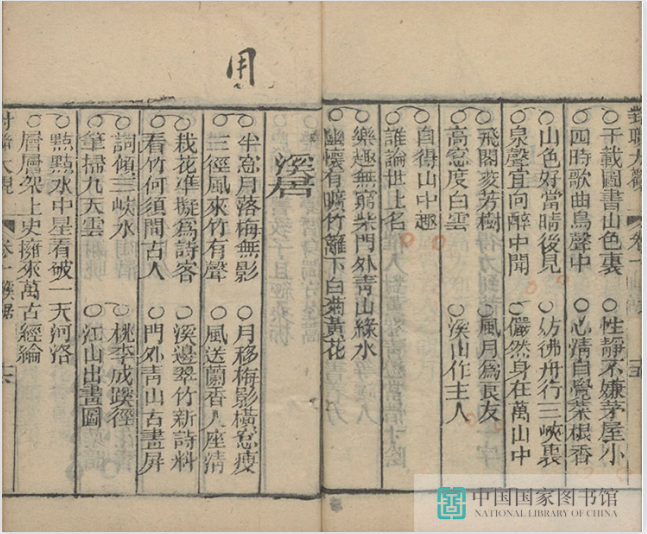 對聯大觀 卷一 十五
○千載圖書山色裏 ○性靜不嫌茅屋小
四時歌曲鳥聲中 心清自覺菜根香
○山色好當晴後見 ○彷彿舟行三峽裏
泉聲宜向醉中聞 儼然身在萬山中
○飛閣凌芳樹 ○風月爲良友
高窓度白雲 ○溪山作主人
○自得山中趣
誰論世上名
○樂趣無窮柴門外靑山綠水
幽懷有嘱竹籬下白菊黃花
溪居
○半窓月落梅無影 ○月移梅影橫窓瘦
三徑風來竹有聲 風送蘭香入座淸
○栽花準擬爲詩客 ○溪邊翠竹新詩料
看竹何須問古人 門外靑山古畫屛
○詞傾三峽水 ○桃李成蹊徑
筆掃九天雲 江山出畫圖
○點點水中星看破一天河洛
層層架上史擁來萬古經綸
對聯大觀 卷一 溪居 十六
用
中国国家图书馆
NATIONAL LIBRARY OF CHINA